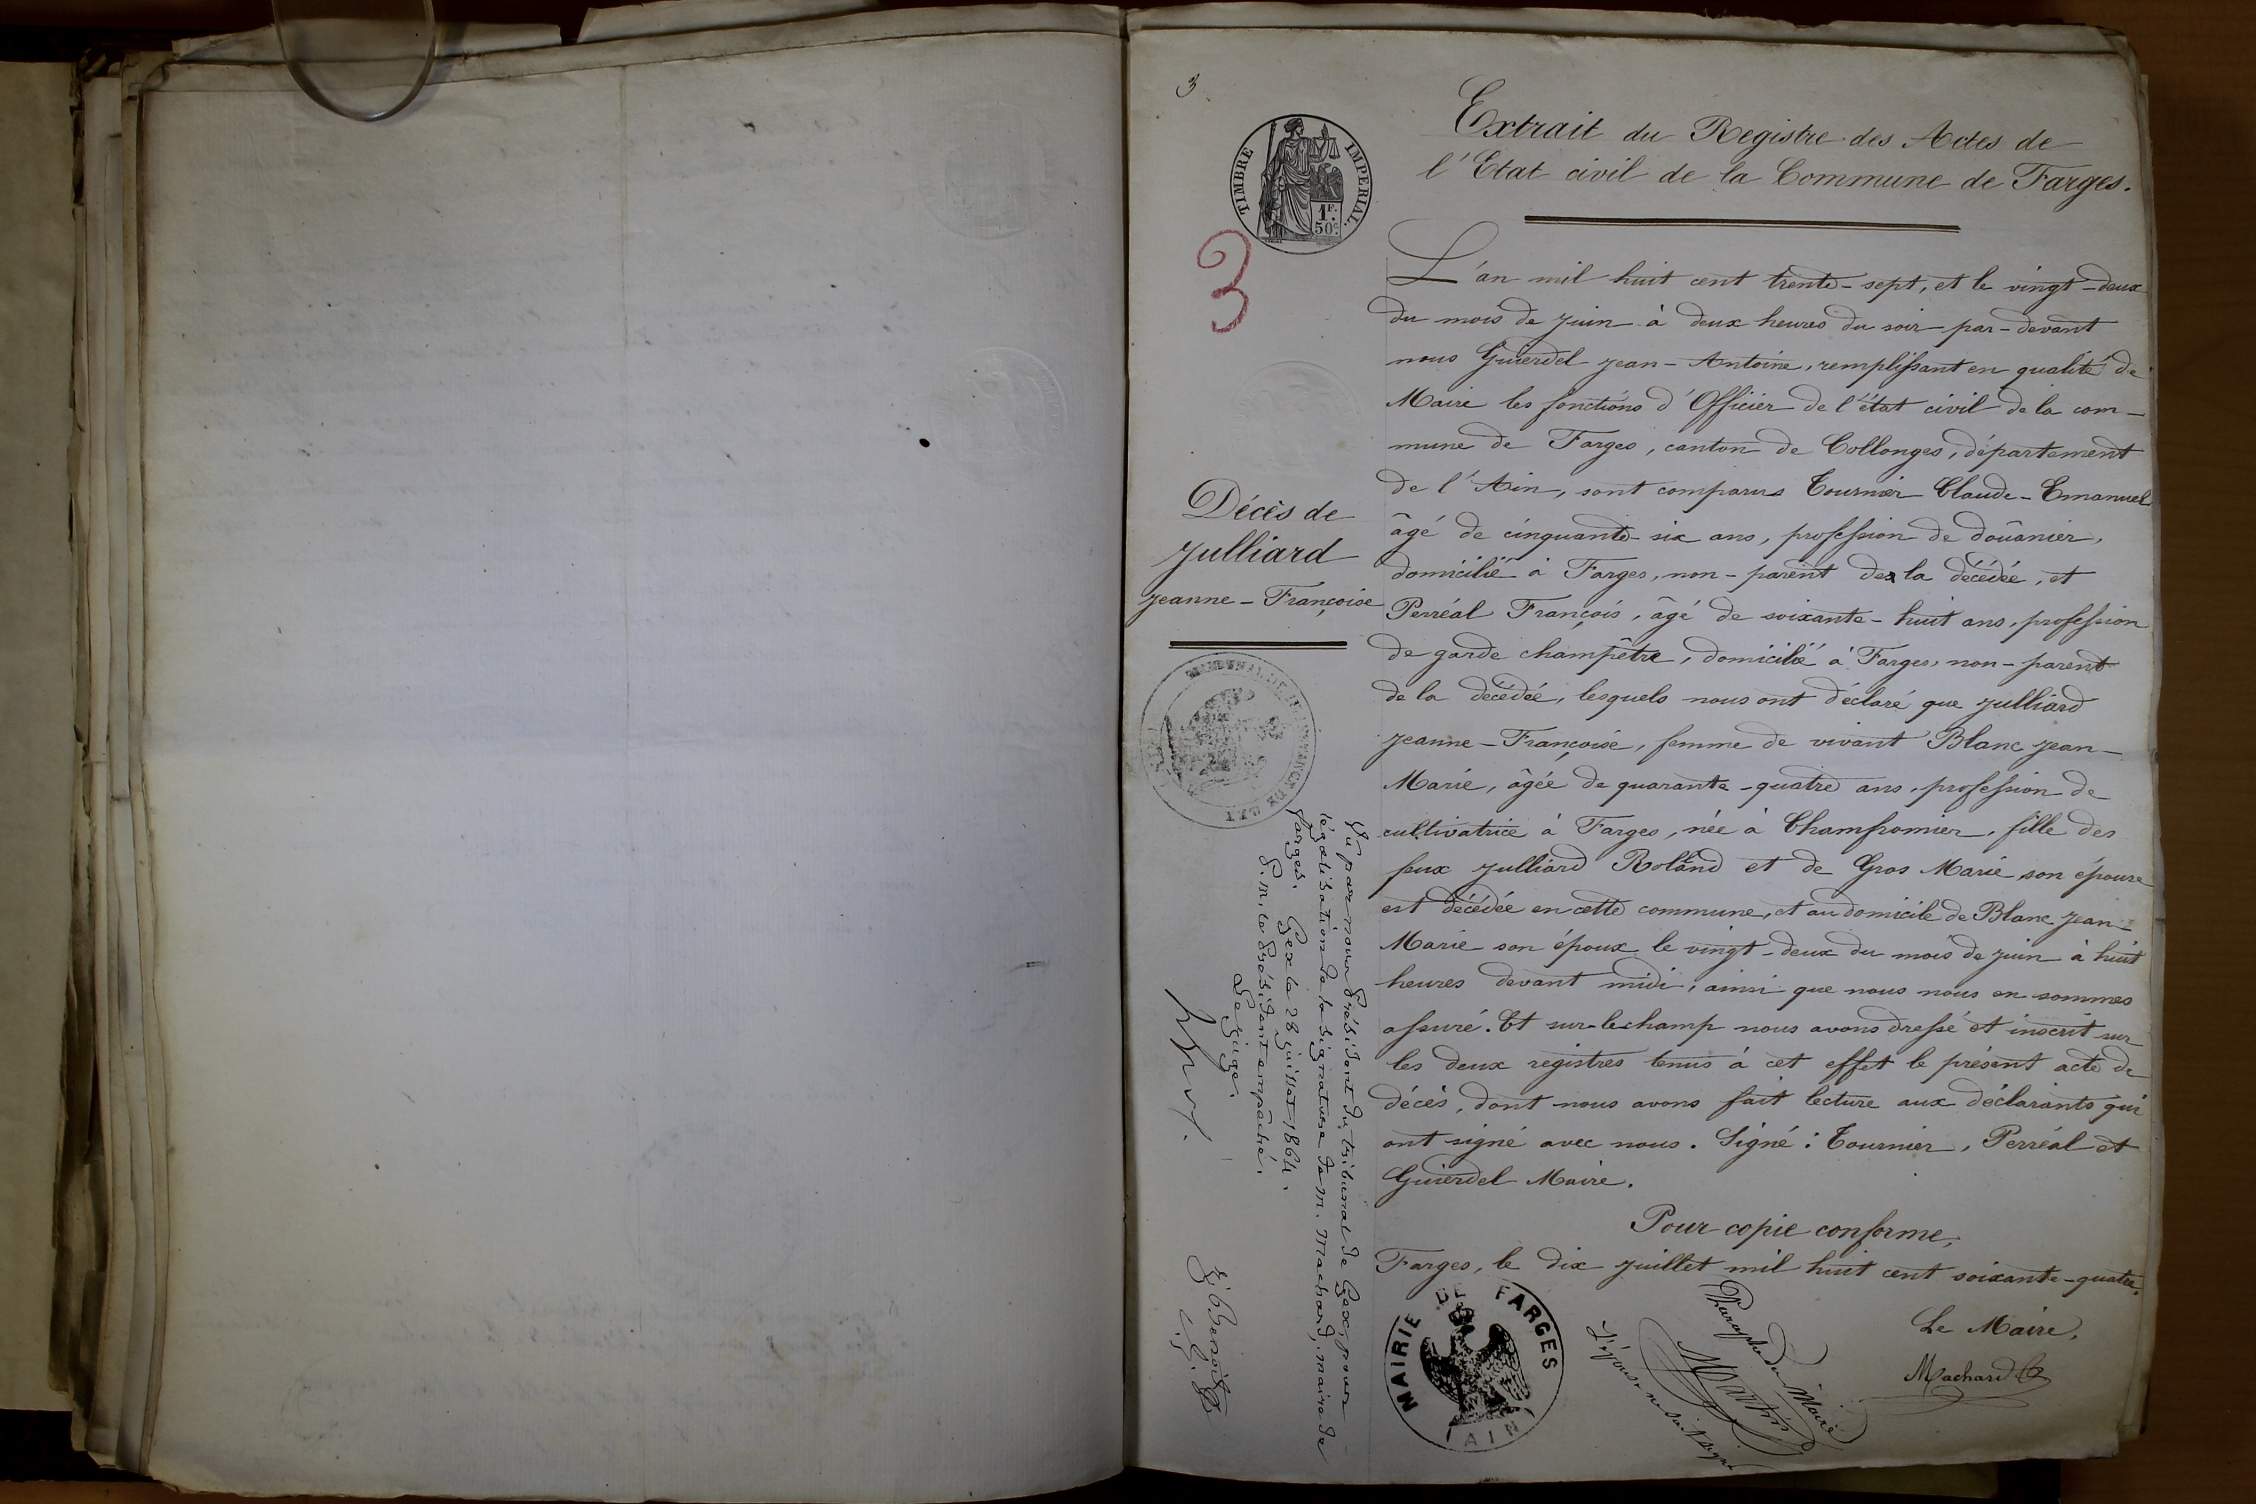 3
Extrait du Registre des Actes de
l'Etat civil de la Commune de Farges.
TIMBRE IMPERIAL
1F.
50c.
3
L'an mil huit cent trente-sept, et le vingt-deux
du mois de juin à deux heures du soir par-devant
nous Guierdel jean-Antoine, remplissant en qualité de
Maire les fonctions d'Officier de l'état civil de la com-
mune de Farges, canton de Collonges, département
de l'Ain, sont comparus Tournier Claude-Emanuel
âgé de cinquante-six ans, profession de douânier,
domicilié à Farges, non-parent de la décédée, et
Perréal François, âgé de soixante-huit ans, profession
de garde champêtre, domicilié à Farges, non-parent
de la décédée, lesquels nous ont déclaré que julliard
jeanne-Françoise, femme de vivant Blanc jean-
Marie, âgée de quarante-quatre ans, profession de
cultivatrice à Farges, née à Champromier, fille des
feux julliard Roland et de Gros Marie son épouse
est décédée en cette commune, et au domicile de Blanc jean-
Marie son époux le vingt-deux du mois de juin à huit
heures devant midi, ainsi que nous nous en sommes
assuré. Et sur-le-champ nous avons dressé et inscrit sur
les deux registres tenus à cet effet le présent acte de
décès, dont nous avons fait lecture aux déclarants qui
ont signé avec nous. Signé: Tournier, Perréal et
Guierdel Maire.
Pour copie conforme,
Farges, le dix juillet mil huit cent soixante-quatre.
Le Maire,
Machard
Décès de
julliard
jeanne-Françoise
Vu par nous Président du tribunal de Gex, pour
légalisation de la signature de M. Machard, maire de
Farges. Gex le 28 juillet 1864.
P. M. le Président empêché,
Le juge,
MAIRIE DE FARGES
AIN
Paraphe du Maire
L'épouse ne sait signer